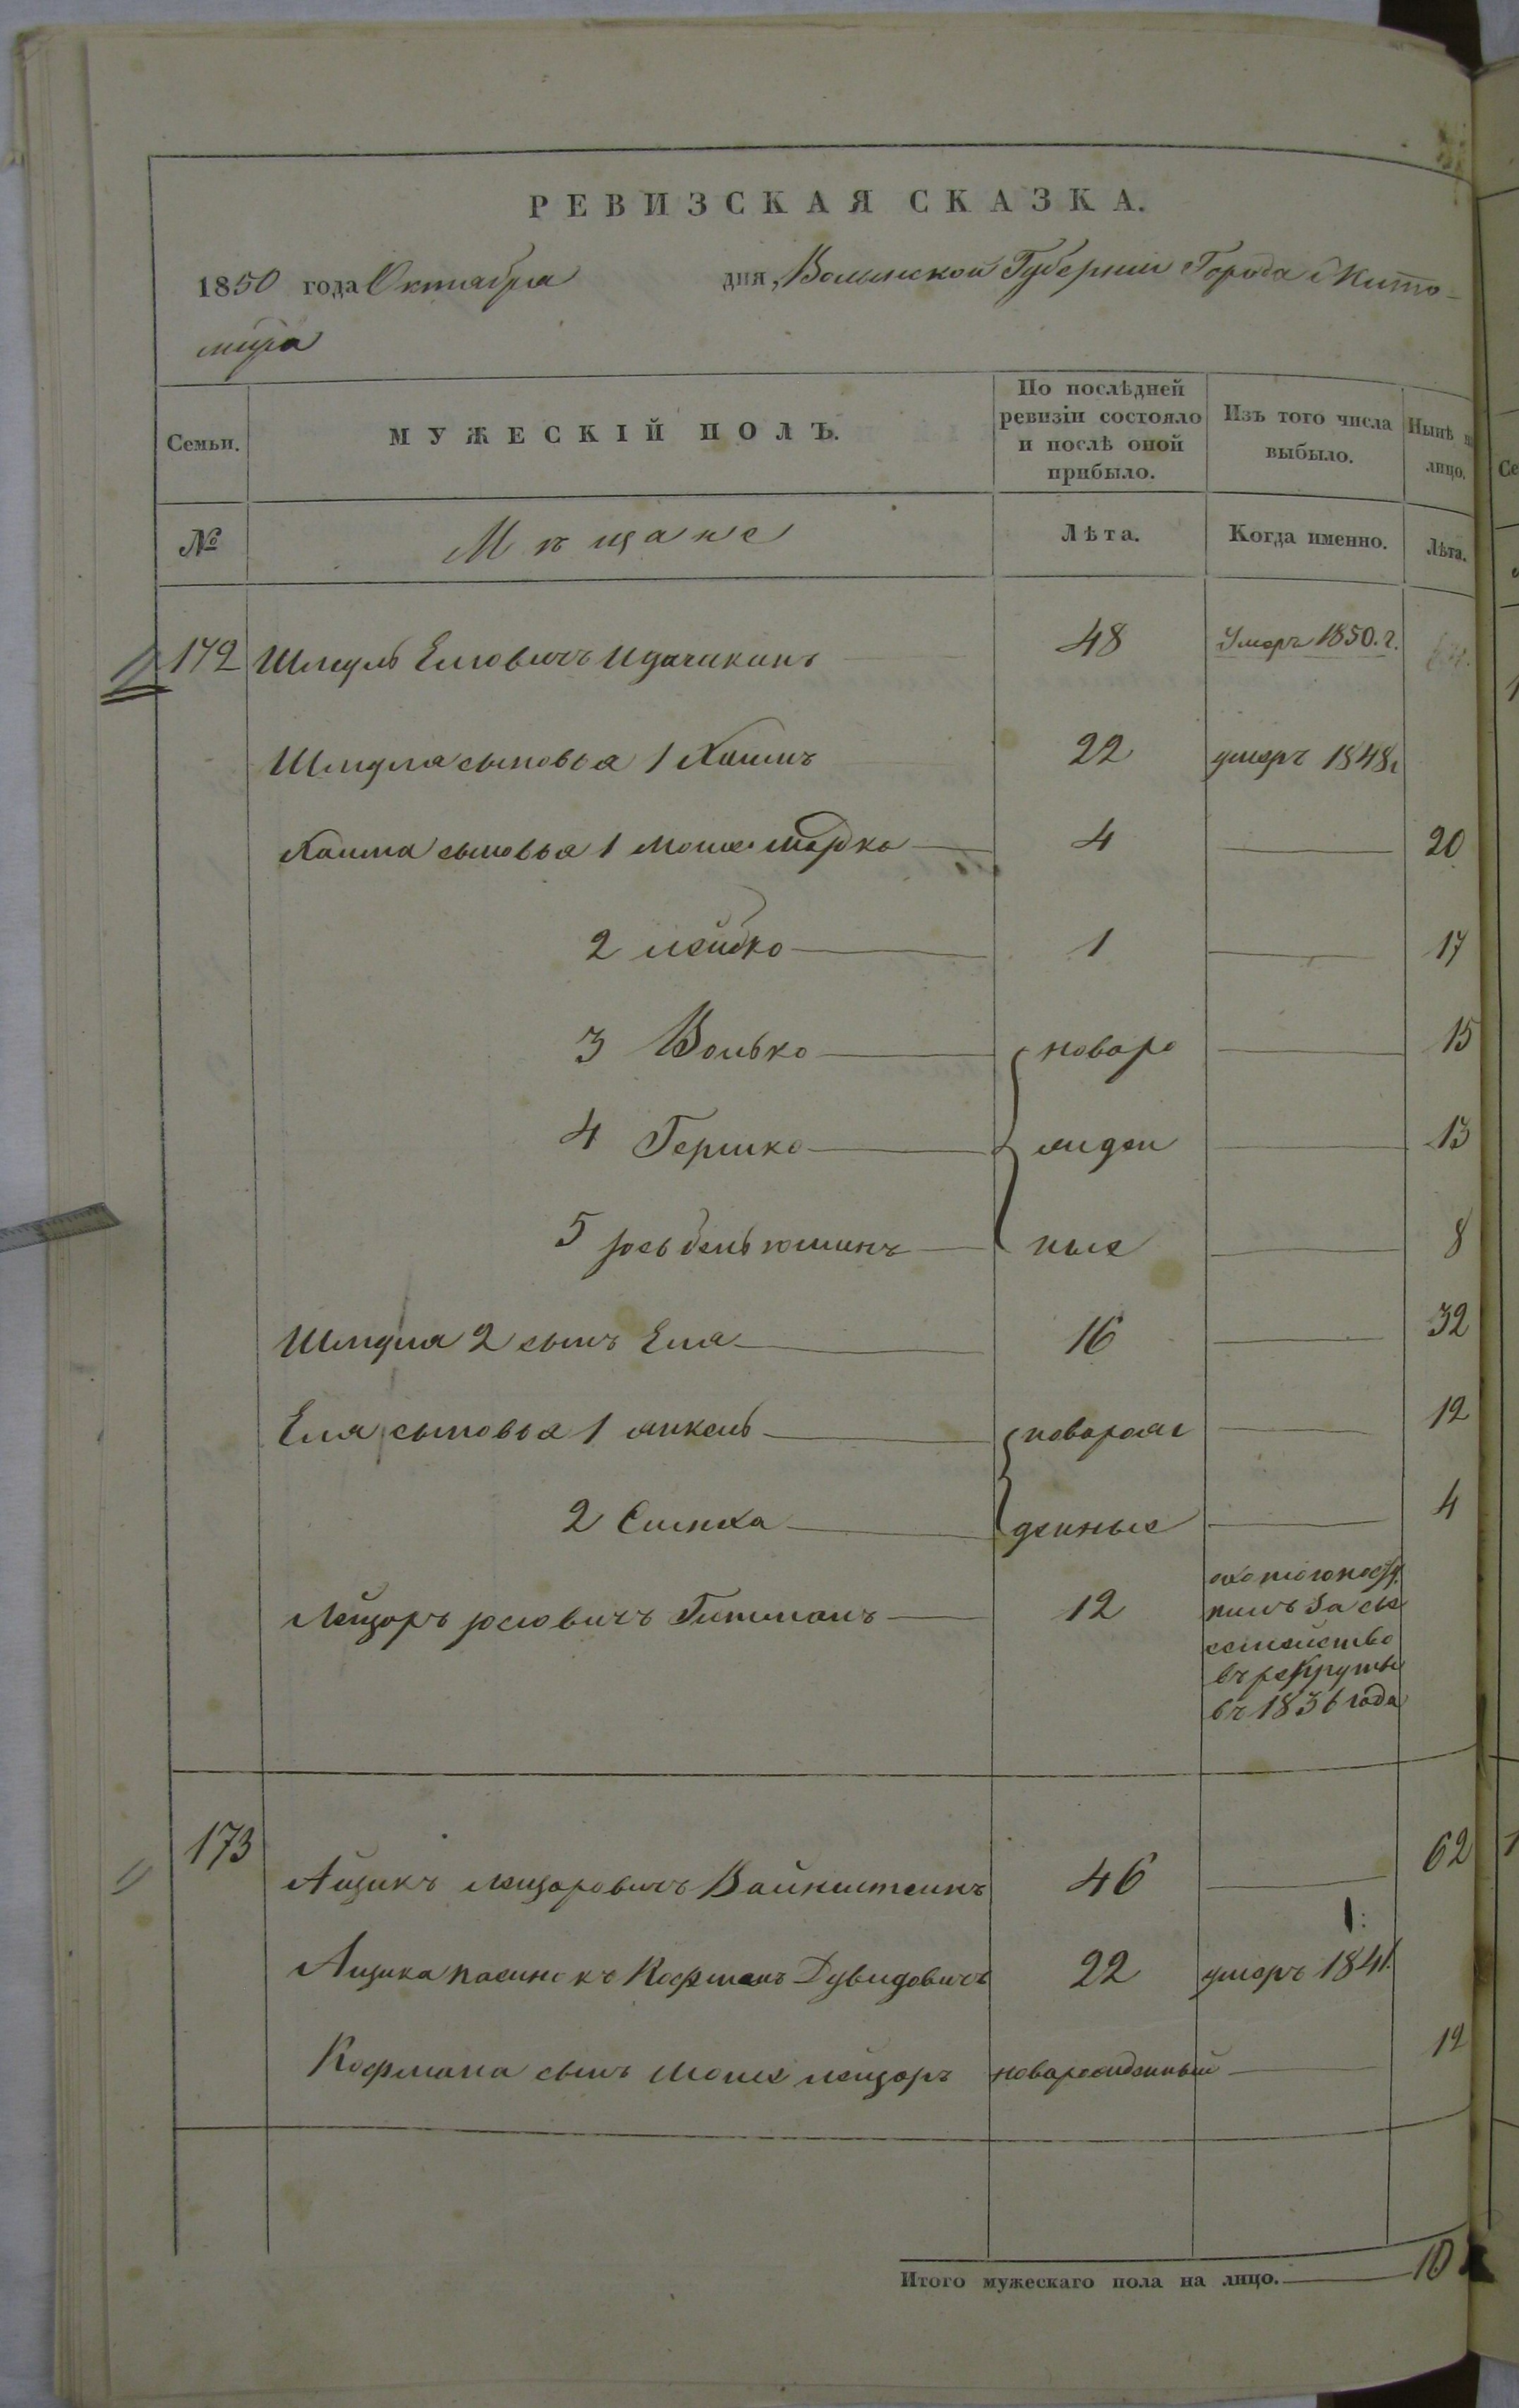 РЕВИЗСКАЯ СКАЗКА.
1850 года Октября дня, Волынской Губернии Города Жито-
мира
Семьи. МУЖЕСКІЙ ПОЛЪ. По послѣдней ревизіи состояло и послѣ оной прибыло. Изъ того числа выбыло. Нынѣ на лицо.
№ Мѣщане Лѣта. Когда именно. Лѣта.
172 Шмуль Елювичъ 48 Умеръ 1850. г.
Шмуля сыновья 1 Хаимъ 22 умеръ 1848г
Хаима сыновья 1 Моше Марко 4 20
2 Лейбко 1 17
3 Волько новоро 15
4 Гершко жден 13
5 Іось беньюминъ ные 8
Шмуля 2 сынъ Еля 16 32
Еля сыновья 1 Янкель новорож 12
2 Симха денные 4
Лейзоръ Іосіовичъ Гитманъ 12 охотою посту
пилъ за сіе
семейство
въ рекруты
въ 1836 года
173 Айзикъ Лейзоровичъ Вайнштейнъ 46 62
1:
Айзика пасинокъ Кофманъ Дувидовичъ 22 умеръ 1841.
Кофмана сынъ Моше Лейзоръ новорожденный 12
Итого мужескаго пола на лицо. 10